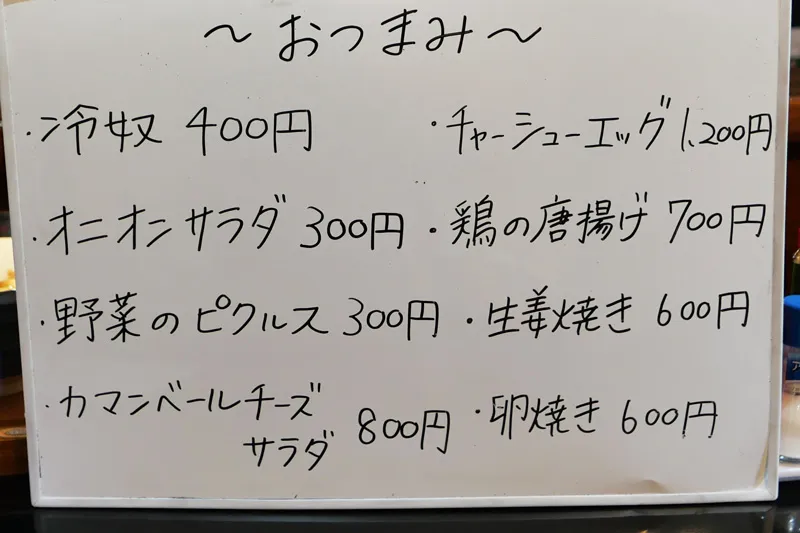 〜おつまみ〜
・冷奴 400円
・オニオンサラダ 300円
・野菜のピクルス 300円
・カマンベールチーズ
サラダ 800円
・チャーシューエッグ 1,200円
・鶏の唐揚げ 700円
・生姜焼き 600円
・卵焼き 600円